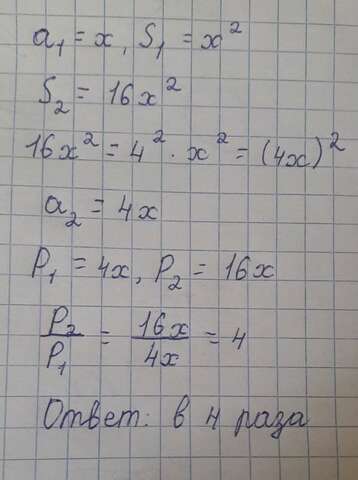 a₁ = x, S₁ = x²
S₂ = 16x²
16x² = 4² · x² = (4x)²
a₂ = 4x
P₁ = 4x, P₂ = 16x
P₂/P₁ = 16x/4x = 4
Ответ: в 4 раза